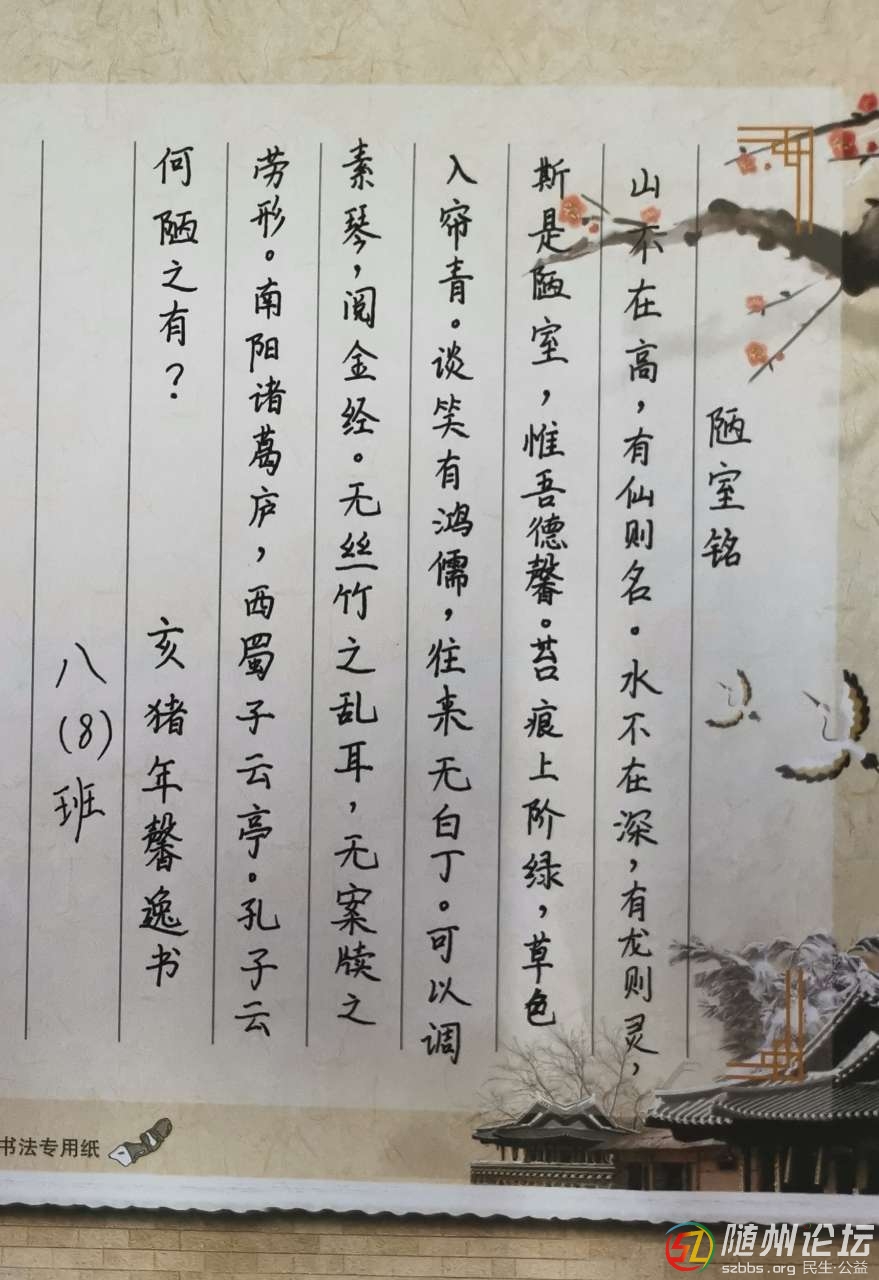 陋室铭
山不在高，有仙则名。水不在深，有龙则灵，
斯是陋室，惟吾德馨。苔痕上阶绿，草色
入帘青。谈笑有鸿儒，往来无白丁。可以调
素琴，阅金经。无丝竹之乱耳，无案牍之
劳形。南阳诸葛庐，西蜀子云亭。孔子云
何陋之有？
亥猪年馨逸书
八(8)班
书法专用纸
随州论坛
szbbs.org 民生·公益